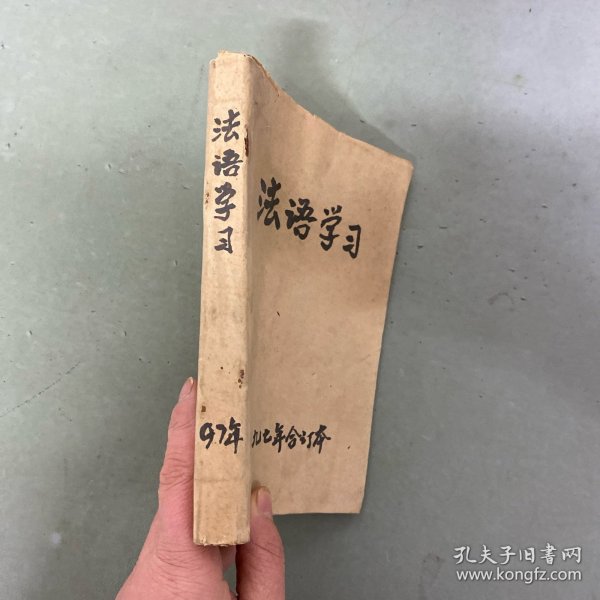 法语学习
97年
法语学习
九七年合订本
孔夫子旧书网
www.kongfz.com